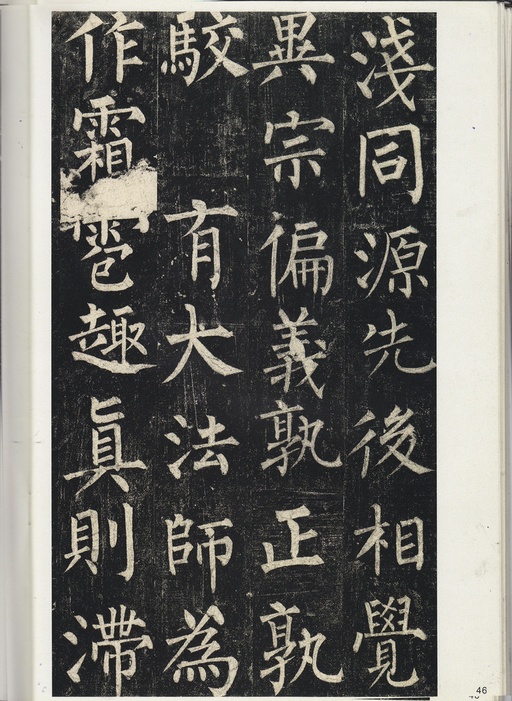 淺同源先後相覺
異宗偏義孰正孰
駮有大法師為
作霜雹趣眞則滯
46